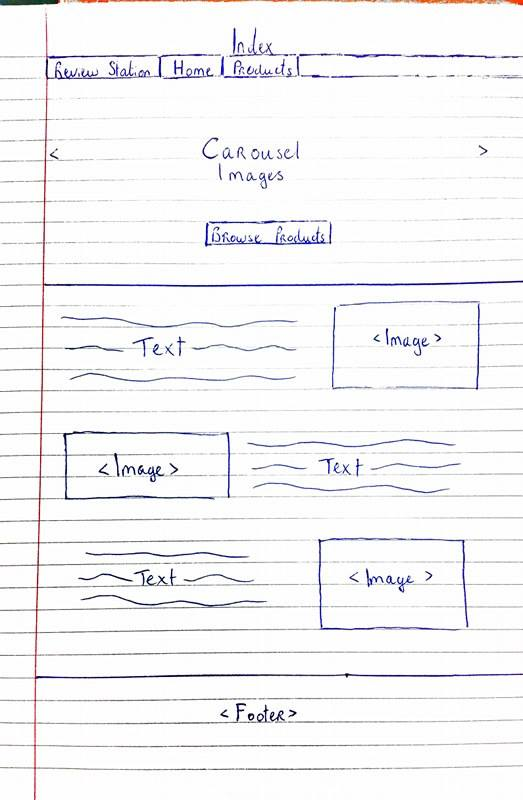 Index
Review Station Home Products
< Carousel >
Images
Browse Products
Text <Image>
<Image> Text
Text <Image>
<Footer>